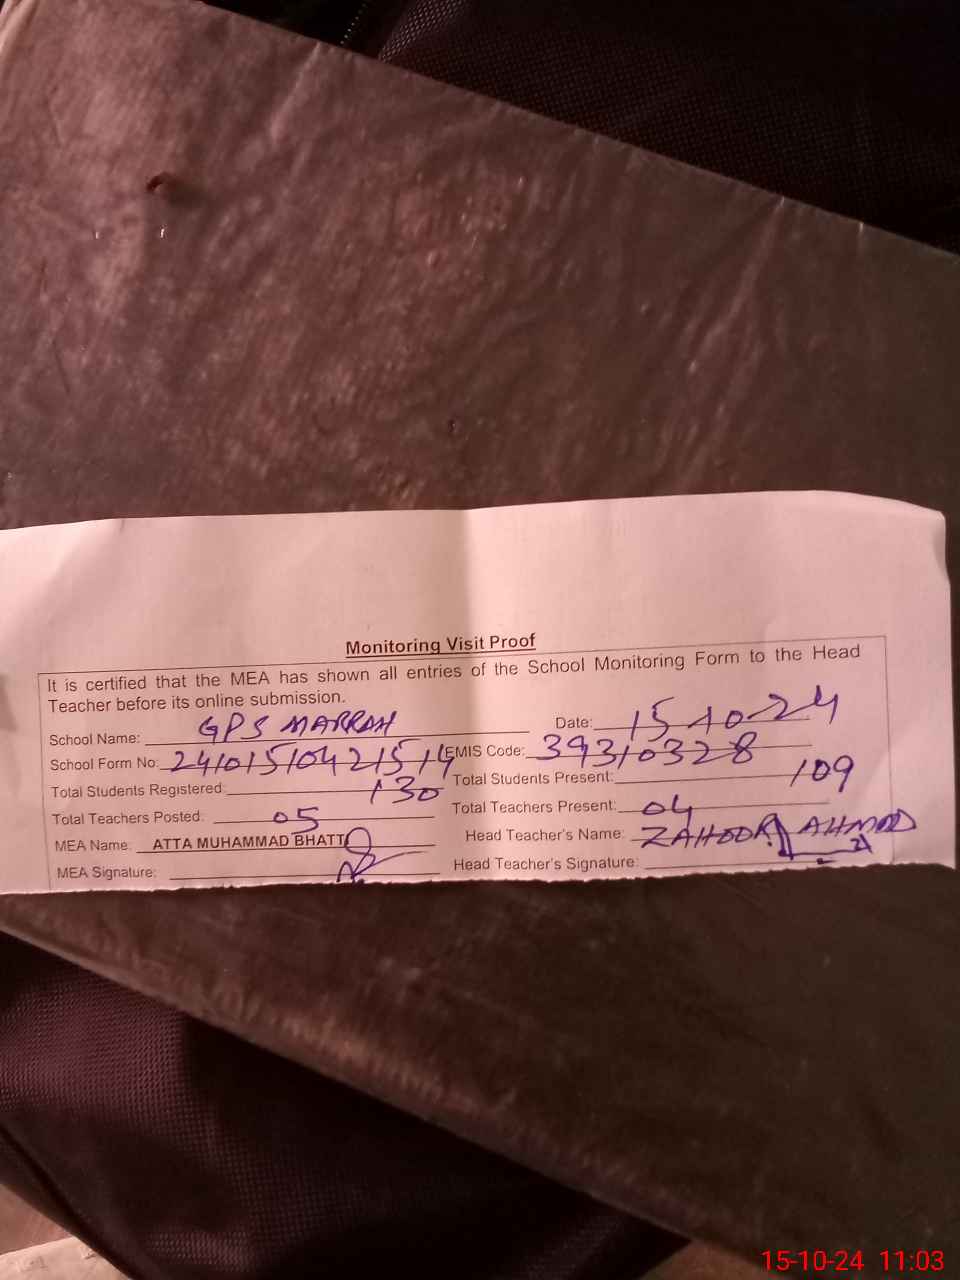 Monitoring Visit Proof
It is certified that the MEA has shown all entries of the School Monitoring Form to the Head
Teacher before its online submission.
School Name: GPS MARRAH Date: 15-10-24
School Form No: 24101510421514 EMIS Code: 39310328
Total Students Registered: 130 Total Students Present: 109
Total Teachers Posted: 05 Total Teachers Present: 04
MEA Name: ATTA MUHAMMAD BHATTI Head Teacher's Name: ZAHOOR AHMAD
MEA Signature: Head Teacher's Signature:
15-10-24 11:03